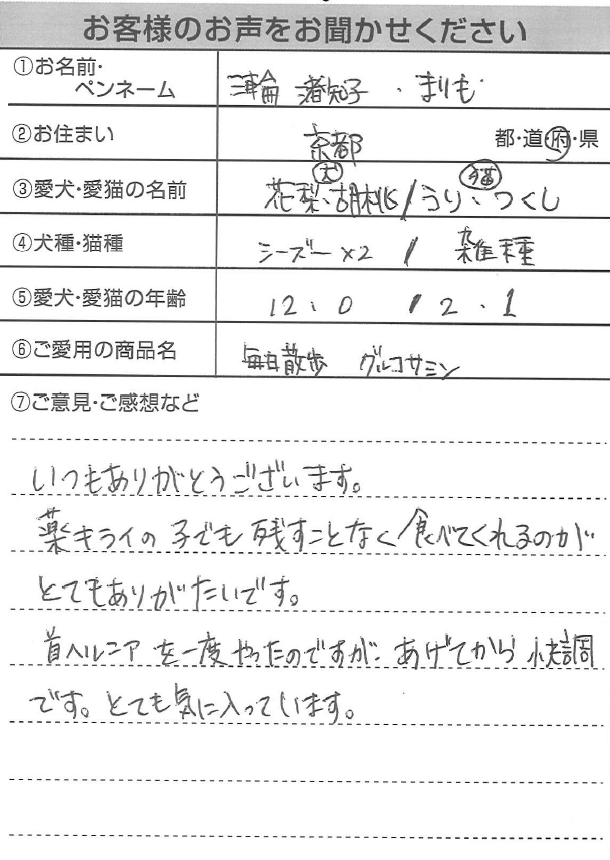 お客様のお声をお聞かせください
①お名前・
ペンネーム
輪 渚知子 ・ まりも
②お住まい
京都
都・道・府・県
③愛犬・愛猫の名前
犬 猫
花梨、胡桃/うり、つくし
④犬種・猫種
シーズー×2 / 雑種
⑤愛犬・愛猫の年齢
12、0 / 2、1
⑥ご愛用の商品名
毎日散歩 グルコサミン
⑦ご意見・ご感想など
いつもありがとうございます。
薬キライの子でも残すことなく食べてくれるのが
とてもありがたいです。
首ヘルニアを一度やったのですが、あげてから快調
です。とても気に入っています。